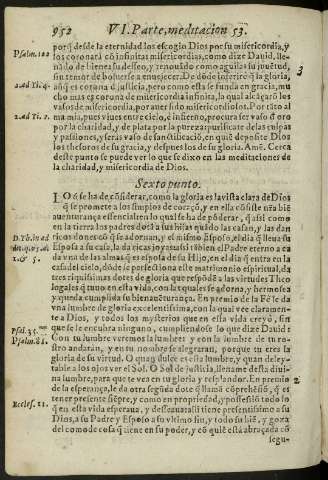 952 VI. Parte, meditacion 53.
Psalm. 102
porq̃ desde la eternidad los escogio Dios por su misericordia, y
los coronarà cõ infinitas misericordias, como dize Dauid, lle-
nãdo de bienes su desseo, y renouãdo como aguilas su jouẽtud,
3
sin temor de boluerse a enuejecer. De dõde inferirè q̃ la gloria,
2. ad Ti. 4.
aũq̃ es corona d̃ justicia, pero como esta se funda en gracia, mu
cho mas es corona de misericordia infinita, la qual alcãçarã los
vasos de misericordia, por auer sido misericordiosos. Por tãto al
2. ad Ti. 2.
ma mia, pues viues entre cieno, è infierno, procura ser vaso d̃ oro
por la charidad, y de plata por la pureza; purificate de las culpas
y passiones, y seràs vaso de sanctificaciõ, en quiẽ deposite Dios
los thesoros de su gracia, y despues los de su gloria. Amẽ. Cerca
deste punto se puede ver lo que se dixo en las meditaciones de
la charidad, y misericordia de Dios.
Sexto punto.
LO 6. se ha de cõsiderar, como la gloria es la vista clara de Dios
q̃ se promete a los limpios de coraçõ, y en ella cõsiste nr̃a biẽ
auenturança essencial en lo qual se ha de põderar, q̃ assi como
en la tierra los padres dotã a sus hijas quãdo las casan, y las dan
D. Th. in ad
ricos dones cõ q̃ se adornan, y el mismo Esposo, el dia q̃ lleua su
Esposa a su casa, la da ricas joyas en arras; assi tambien el Padre eterno a ca
1. & 5.
da vna de las almas q̃ es esposa de su Hijo, en el dia q̃ entra en la
casa del cielo, dõde se perficiona este matrimonio espiritual, da
tres riquissimas dotes de gloria que respõdẽ a las virtudes Theo
logales q̃ tuuo en esta vida, con las quales se adorna, y hermosea
y queda cumplida su bienauẽturança. En premio de la Fè le da
vna lumbre de gloria excelentissima, con la qual vee claramen-
te a Dios, y todos los mysterios que en esta vida creyò, sin
Psal. 35.
que se le encubra ninguno, cumpliendose lo que dize Dauid:
Psalm. 88.
Con tu lumbre veremos la lumbre: y con la lumbre de tu ro-
stro andaràn, y en tu nombre se alegraràn, porque tu eres la
gloria de su virtud. O quan dulce es esta lumbre, y quan deley-
table a los ojos ver el Sol. O Sol de justicia, llename desta diui-
na lumbre, para que te vea en tu gloria y resplandor. En premio
2
de la esperança, le da otra segũda dote q̃ llamã cõprehẽsiõ, q̃ es
Eccles. 11.
tener presente siẽpre, y como en propriedad, y possessiõ todo lo
q̃ en esta vida esperaua, y desseaua: alli tiene presentissimo a su
Dios, a su Padre y Esposo a su vltimo fin, y todo su biẽ, y goza
del como de cosa q̃ tiene en su poder, y cõ quiẽ està abraçada cõ
segu-